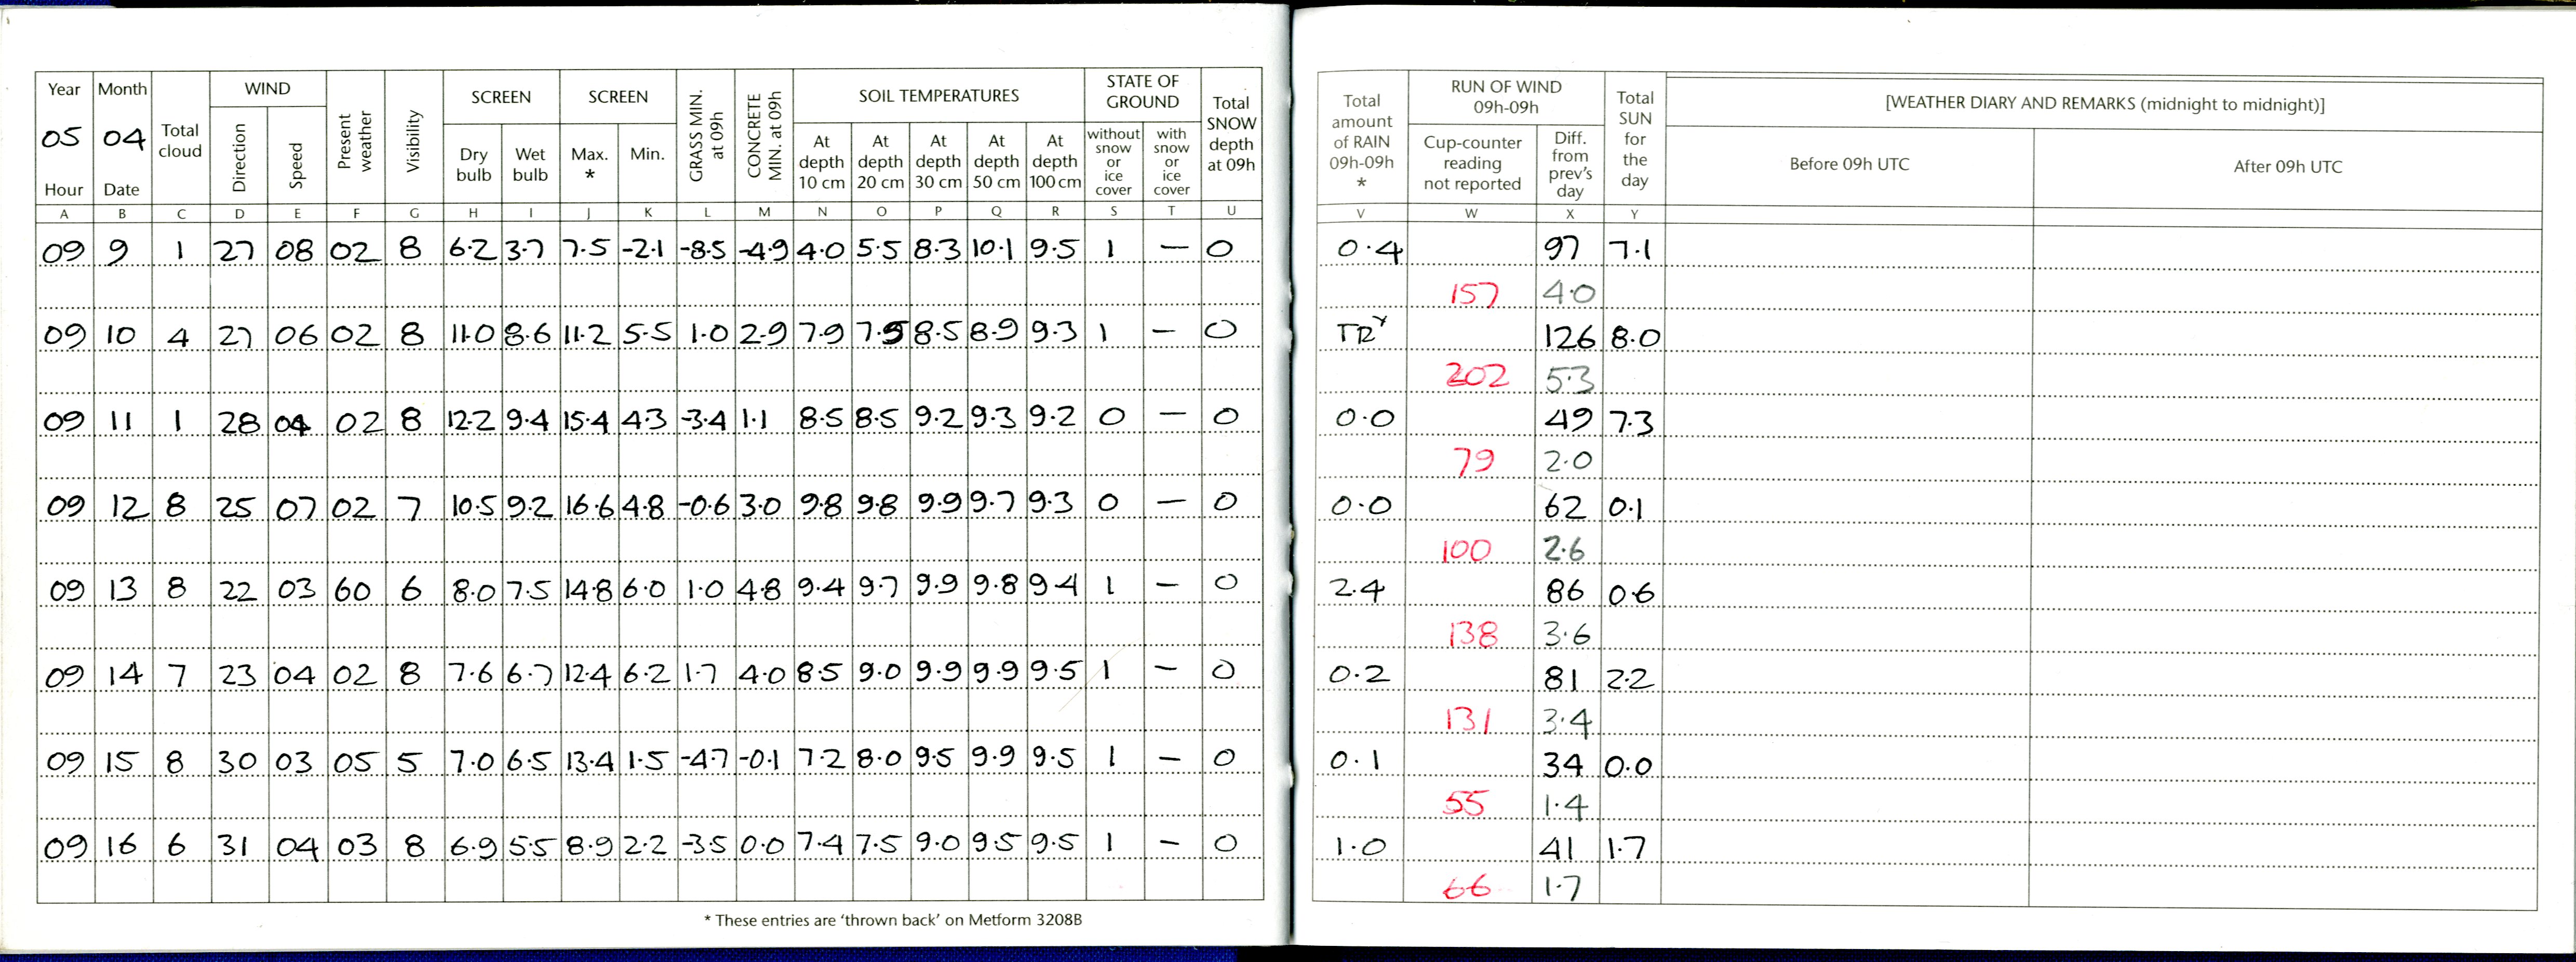 Year Month WIND SCREEN SCREEN GRASS MIN. at 09h CONCRETE MIN. at 09h SOIL TEMPERATURES STATE OF GROUND Total SNOW depth at 09h
05 04 Total cloud Direction Speed Present weather Visibility Dry bulb Wet bulb Max. * Min. At depth 10 cm At depth 20 cm At depth 30 cm At depth 50 cm At depth 100 cm without snow or ice cover with snow or ice cover
Hour Date
A B C D E F G H I J K L M N O P Q R S T U
09 9 1 27 08 02 8 6.2 3.7 7.5 -2.1 -8.5 -4.9 4.0 5.5 8.3 10.1 9.5 1 — 0
09 10 4 27 06 02 8 11.0 8.6 11.2 5.5 1.0 2.9 7.9 7.9 8.5 8.9 9.3 1 — 0
09 11 1 28 04 02 8 12.2 9.4 15.4 4.3 -3.4 1.1 8.5 8.5 9.2 9.3 9.2 0 — 0
09 12 8 25 07 02 7 10.5 9.2 16.6 4.8 -0.6 3.0 9.8 9.8 9.9 9.7 9.3 0 — 0
09 13 8 22 03 60 6 8.0 7.5 14.8 6.0 1.0 4.8 9.4 9.7 9.9 9.8 9.4 1 — 0
09 14 7 23 04 02 8 7.6 6.7 12.4 6.2 1.7 4.0 8.5 9.0 9.9 9.9 9.5 1 — 0
09 15 8 30 03 05 5 7.0 6.5 13.4 1.5 -4.7 -0.1 7.2 8.0 9.5 9.9 9.5 1 — 0
09 16 6 31 04 03 8 6.9 5.5 8.9 2.2 -3.5 0.0 7.4 7.5 9.0 9.5 9.5 1 — 0
* These entries are ‘thrown back’ on Metform 3208B
Total amount of RAIN 09h-09h * RUN OF WIND 09h-09h Total SUN for the day [WEATHER DIARY AND REMARKS (midnight to midnight)]
Cup-counter reading not reported Diff. from prev's day Before 09h UTC After 09h UTC
V W X Y
0.4 97 7.1
157 4.0
TR 126 8.0
202 5.3
0.0 49 7.3
79 2.0
0.0 62 0.1
100 2.6
2.4 86 0.6
138 3.6
0.2 81 2.2
131 3.4
0.1 34 0.0
55 1.4
1.0 41 1.7
66 1.7